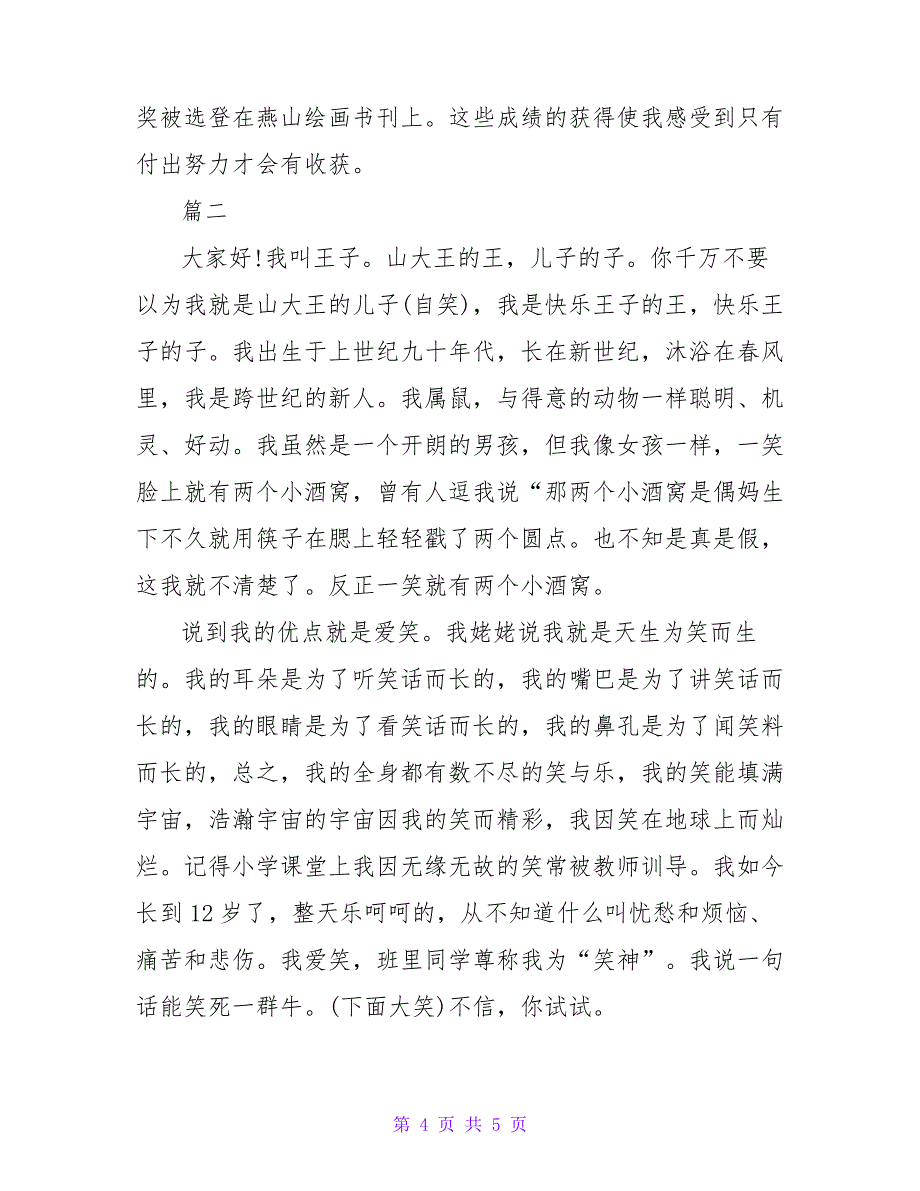 奖被选登在燕山绘画书刊上。这些成绩的获得使我感受到只有
付出努力才会有收获。
篇二
大家好!我叫王子。山大王的王，儿子的子。你千万不要
以为我就是山大王的儿子(自笑)，我是快乐王子的王，快乐王
子的子。我出生于上世纪九十年代，长在新世纪，沐浴在春风
里，我是跨世纪的新人。我属鼠，与得意的动物一样聪明、机
灵、好动。我虽然是一个开朗的男孩，但我像女孩一样，一笑
脸上就有两个小酒窝，曾有人逗我说“那两个小酒窝是偶妈生
下不久就用筷子在腮上轻轻戳了两个圆点。也不知是真是假，
这我就不清楚了。反正一笑就有两个小酒窝。
说到我的优点就是爱笑。我姥姥说我就是天生为笑而生
的。我的耳朵是为了听笑话而长的，我的嘴巴是为了讲笑话而
长的，我的眼睛是为了看笑话而长的，我的鼻孔是为了闻笑料
而长的，总之，我的全身都有数不尽的笑与乐，我的笑能填满
宇宙，浩瀚宇宙的宇宙因我的笑而精彩，我因笑在地球上而灿
烂。记得小学课堂上我因无缘无故的笑常被教师训导。我如今
长到12岁了，整天乐呵呵的，从不知道什么叫忧愁和烦恼、
痛苦和悲伤。我爱笑，班里同学尊称我为“笑神”。我说一句
话能笑死一群牛。(下面大笑)不信，你试试。
第 4 页 共 5 页